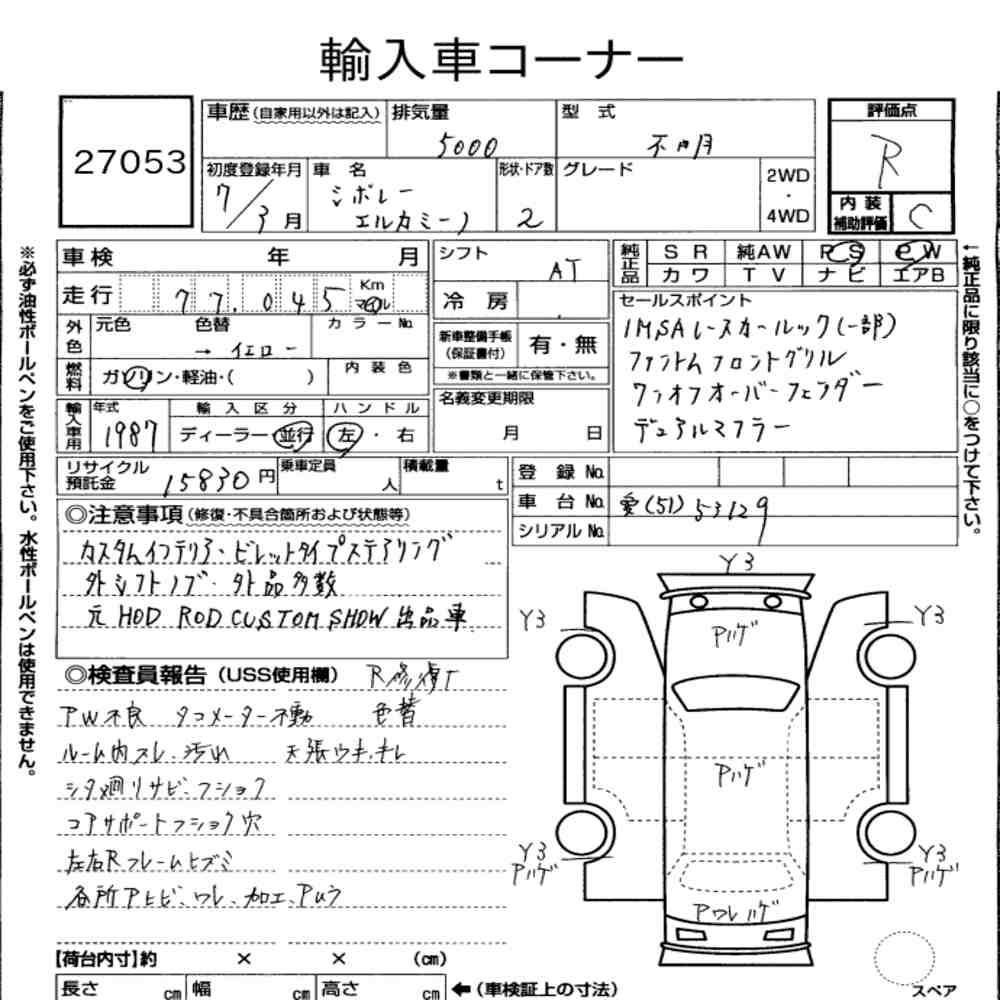 輸入車コーナー
27053
車歴(自家用以外は記入) 排気量 5000 型式 不明
評価点 R
初度登録年月 7/3月 車名 シボレー エルカミーノ 形状・ドア数 2 グレード 2WD・4WD
内装補助評価 C
車検 年 月
シフト AT
純正品 SR 純AW PS PW
カワ TV ナビ エアB
走行 77,045 Km マイル
冷房
セールスポイント
IMSAレースカールック(一部)
ファントムフロントグリル
ワンオフオーバーフェンダー
デュアルマフラー
外色 元色 色替 カラーNo.
→ イエロー
新車整備手帳(保証書付) 有・無
※書類と一緒に保管下さい。
燃料 ガソリン・軽油・( ) 内装色
名義変更期限
月 日
輸入車用 年式 1987 輸入区分 ハンドル
ディーラー・並行 左・右
リサイクル預託金 15830円 乗車定員 人 積載量 t
登録No.
車台No. 愛(51)53129
シリアルNo.
◎注意事項(修復・不具合箇所および状態等)
カスタムインテリア・ビレットタイプステアリング
外シフトノブ・外品多数
元 HOD ROD CUSTOM SHOW 出品車
◎検査員報告(USS使用欄) R修復有
PW不良 タコメーター不動 色替
ルーム内スレ、汚れ 天張ウキ、キレ
シタ廻リサビ、フショク
コアサポートフショク穴
左右Rフレームヒズミ
各所Pヒビ、ワレ、加工、Pムラ
【荷台内寸】約 × × (cm)
長さ cm 幅 cm 高さ cm ←(車検証上の寸法)
Y3
Y3
Y3
Pハゲ
Pハゲ
Y3
Pハゲ
Y3
Pハゲ
Pワレハゲ
スペア
※必ず油性ボールペンをご使用下さい。水性ボールペンは使用できません。
←純正品に限り該当に○をつけて下さい。